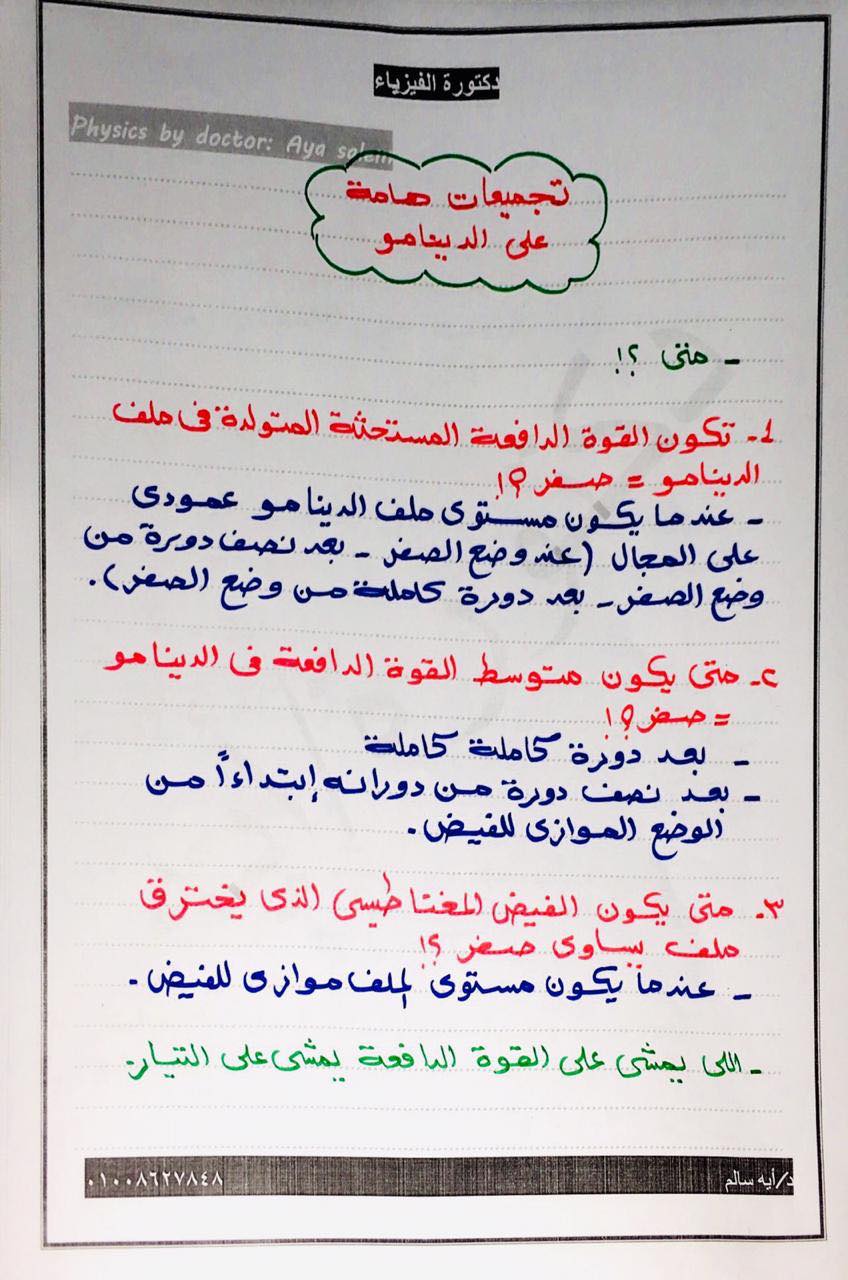 دكتورة الفيزياء
Physics by doctor: Aya salem
تجميعات هامة
على الدينامو
- متى ؟!
1- تكون القوة الدافعة المستحثة المتولدة فى ملف
الدينامو = صفر ؟!
- عندما يكون مستوى ملف الدينامو عمودى
على المجال (عند وضع الصفر - بعد نصف دورة من
وضع الصفر - بعد دورة كاملة من وضع الصفر).
٢- متى يكون متوسط القوة الدافعة فى الدينامو
= صفر ؟!
- بعد دورة كاملة كاملة
- بعد نصف دورة من دورانه إبتداءاً من
الوضع الموازى للفيض.
٣- متى يكون الفيض المغناطيسى الذى يخترق
ملف يساوى صفر ؟!
- عندما يكون مستوى الملف موازى للفيض.
- اللى يمشى على القوة الدافعة يمشى على التيار.
د/أيه سالم
٠١٠٠٨٦٢٧٨٤٨